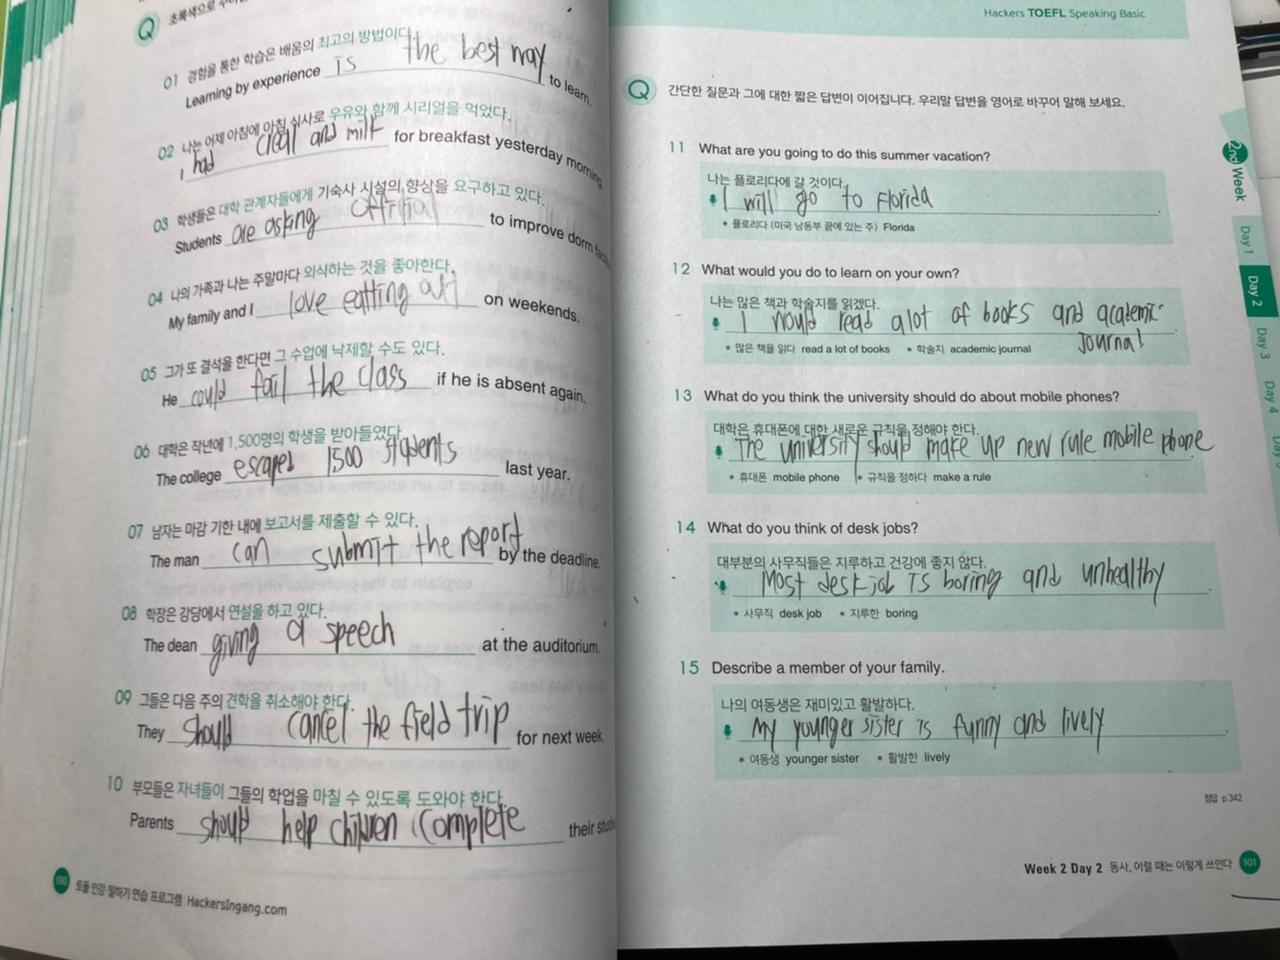 Q
01 경험을 통한 학습은 배움의 최고의 방법이다.
Learning by experience is the best way to learn.
02 나는 어제 아침에 아침 식사로 우유와 함께 시리얼을 먹었다.
I had creal and milk for breakfast yesterday morning.
03 학생들은 대학 관계자들에게 기숙사 시설의 향상을 요구하고 있다.
Students are asking to improve dorm
04 나의 가족과 나는 주말마다 외식하는 것을 좋아한다.
My family and I love eatting out on weekends.
05 그가 또 결석을 한다면 그 수업에 낙제할 수도 있다.
He could fail the class if he is absent again.
06 대학은 작년에 1,500명의 학생을 받아들였다.
The college escaped 1500 students last year.
07 남자는 마감 기한 내에 보고서를 제출할 수 있다.
The man can submit the report by the deadline.
08 학장은 강당에서 연설을 하고 있다.
The dean giving a speech at the auditorium.
09 그들은 다음 주의 견학을 취소해야 한다.
They should cancel the field trip for next week.
10 부모들은 자녀들이 그들의 학업을 마칠 수 있도록 도와야 한다.
Parents should help children complete their
100 토플 인강·말하기 연습 프로그램 HackersIngang.com
Hackers TOEFL Speaking Basic
Q 간단한 질문과 그에 대한 짧은 답변이 이어집니다. 우리말 답변을 영어로 바꾸어 말해 보세요.
11 What are you going to do this summer vacation?
나는 플로리다에 갈 것이다.
I will go to Florida
• 플로리다 (미국 남동부 끝에 있는 주) Florida
12 What would you do to learn on your own?
나는 많은 책과 학술지를 읽겠다.
I would read alot of books and academic
journal
• 많은 책을 읽다 read a lot of books • 학술지 academic journal
13 What do you think the university should do about mobile phones?
대학은 휴대폰에 대한 새로운 규칙을 정해야 한다.
The university should make up new rule mobile phone
• 휴대폰 mobile phone • 규칙을 정하다 make a rule
14 What do you think of desk jobs?
대부분의 사무직들은 지루하고 건강에 좋지 않다.
Most desk job is boring and unhealthy
• 사무직 desk job • 지루한 boring
15 Describe a member of your family.
나의 여동생은 재미있고 활발하다.
My younger sister is funny and lively
• 여동생 younger sister • 활발한 lively
정답 p.342
Week 2 Day 2 동사, 이럴 때는 이렇게 쓰인다 101
2nd Week
Day 1
Day 2
Day 3
Day 4